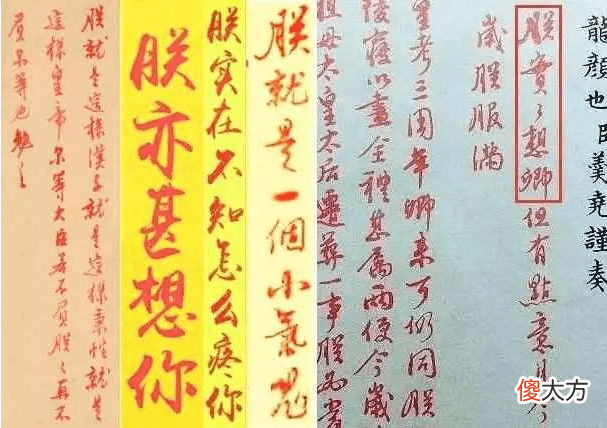 龍顏也臣羹堯謹奏
朕實々想卿但有點意見今
歲朕服滿
皇考三周年卿來可仍同朕
陵寢以盡全禮甚屬兩便今歲
祖母太皇太后遷葬一事朕
朕就是一個小氣鬼
朕实在不知怎么疼你
朕亦甚想你
朕就是這樣漢子就是這樣秉性就是
這樣皇帝尔等大臣若不負朕々再不
負尔等也勉之
傻大方